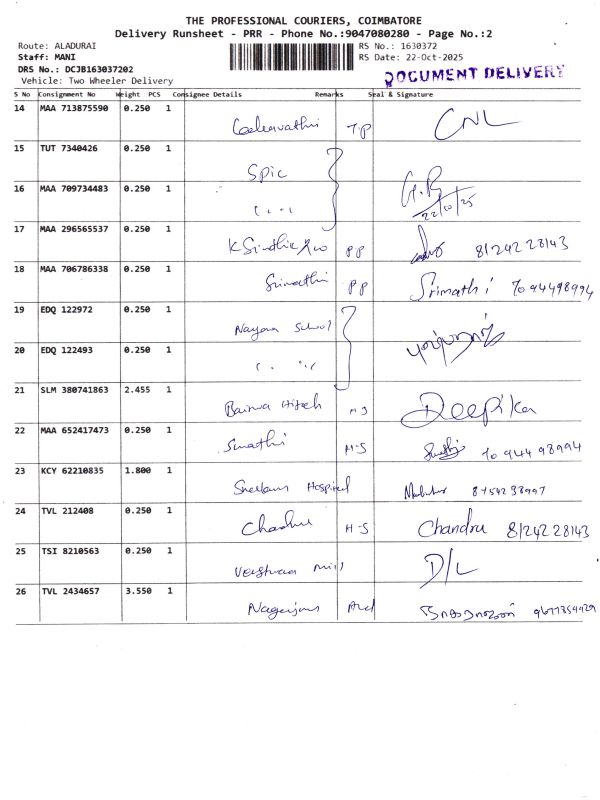 THE PROFESSIONAL COURIERS, COIMBATORE
Delivery Runsheet - PRR - Phone No.:9047080280 - Page No.:2
Route: ALADURAI RS No.: 1630372
Staff: MANI RS Date: 22-Oct-2025
DRS No.: DCJB163037202 DOCUMENT DELIVERY
Vehicle: Two Wheeler Delivery
S No Consignment No Weight PCS Consignee Details Remarks Seal & Signature
14 MAA 713875590 0.250 1 T.P CNL
15 TUT 7340426 0.250 1 Spic
16 MAA 709734483 0.250 1 " " G.R 22/10/25
17 MAA 296565537 0.250 1 K PP 8124228143
18 MAA 706786338 0.250 1 Srimathi PP Srimathi 7094498994
19 EDQ 122972 0.250 1 School
20 EDQ 122493 0.250 1 " "
21 SLM 380741863 2.455 1 Deepika
22 MAA 652417473 0.250 1 Sumathi H-S 7094498994
23 KCY 62210835 1.800 1 Hospital 8754238997
24 TVL 212408 0.250 1 H-S Chandru 8124228143
25 TSI 8210563 0.250 1 Mill D/L
26 TVL 2434657 3.550 1